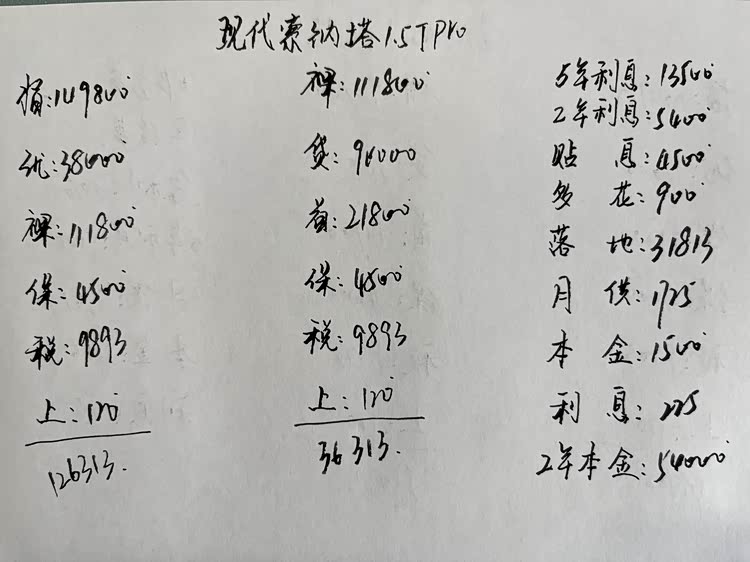 现代索纳塔1.5TPro
指:149800
优:38000
裸:111800
保:4500
税:9893
上:120
126313.
裸:111800
贷:90000
首:21800
保:4500
税:9893
上:120
36313.
5年利息:13500
2年利息:5400
贴息:4500
多花:900
落地:31813
月供:1725
本金:1500
利息:225
2年本金:54000